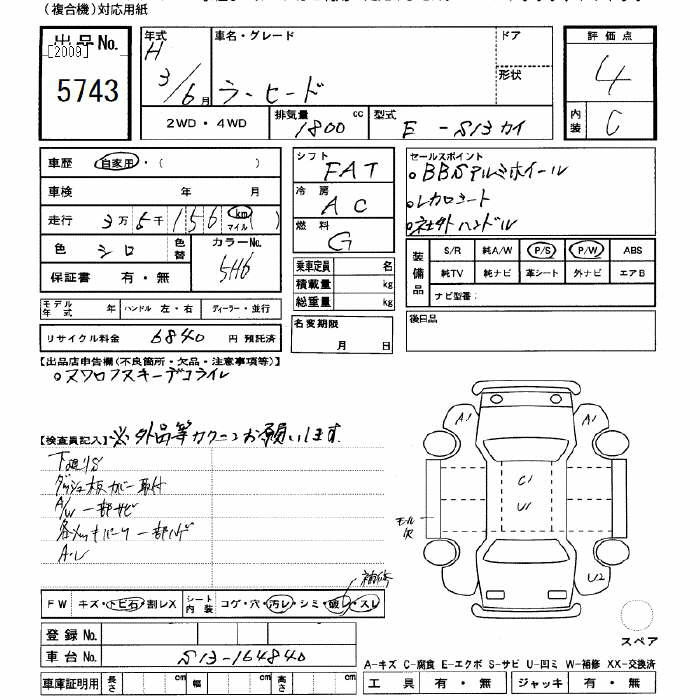 （複合機）対応用紙
出品No.
[2009]
5743
年式 H 3/6月
車名・グレード
ラ・ヒード
ドア
形状
評価点
4
内装 C
2WD・4WD
排気量 1800 cc
型式 E-S13カイ
車歴 自家用・（　　　）
車検 年 月
走行 3万5千156 km マイル ( )
色 シロ
色替
カラーNo. 5H6
保証書 有・無
シフト FAT
冷房 AC
燃料 G
セールスポイント
。BBSアルミホイール
。レカロシート
。社外ハンドル
装備品
S/R 純A/W P/S P/W ABS
純TV 純ナビ 革シート 外ナビ エアB
ナビ型番：
乗車定員 名
積載量 kg
総重量 kg
モデル年式 年 ハンドル 左・右 ディーラー・並行
リサイクル料金 6840 円 預託済
名変期限 月 日
後日品
【出品店申告欄（不良箇所・欠品・注意事項等）】
。スワロフスキーデコライル
【検査員記入】 ※外品等カクニンお願いします.
下廻りS
ダッシュ板カバー取付
A/W一部サビ
一部ハゲ
A1
A1
C1
U1
モール
U2
補修
FW キズ・トビ石・割レX
シート内装 コゲ・穴・汚レ・シミ・破レ・スレ
登録No.
車台No. S13-164840
車庫証明用 長さ cm 幅 cm 高さ cm
スペア
A-キズ C-腐食 E-エクボ S-サビ U-凹ミ W-補修 XX-交換済
工具 有・無 ジャッキ 有・無